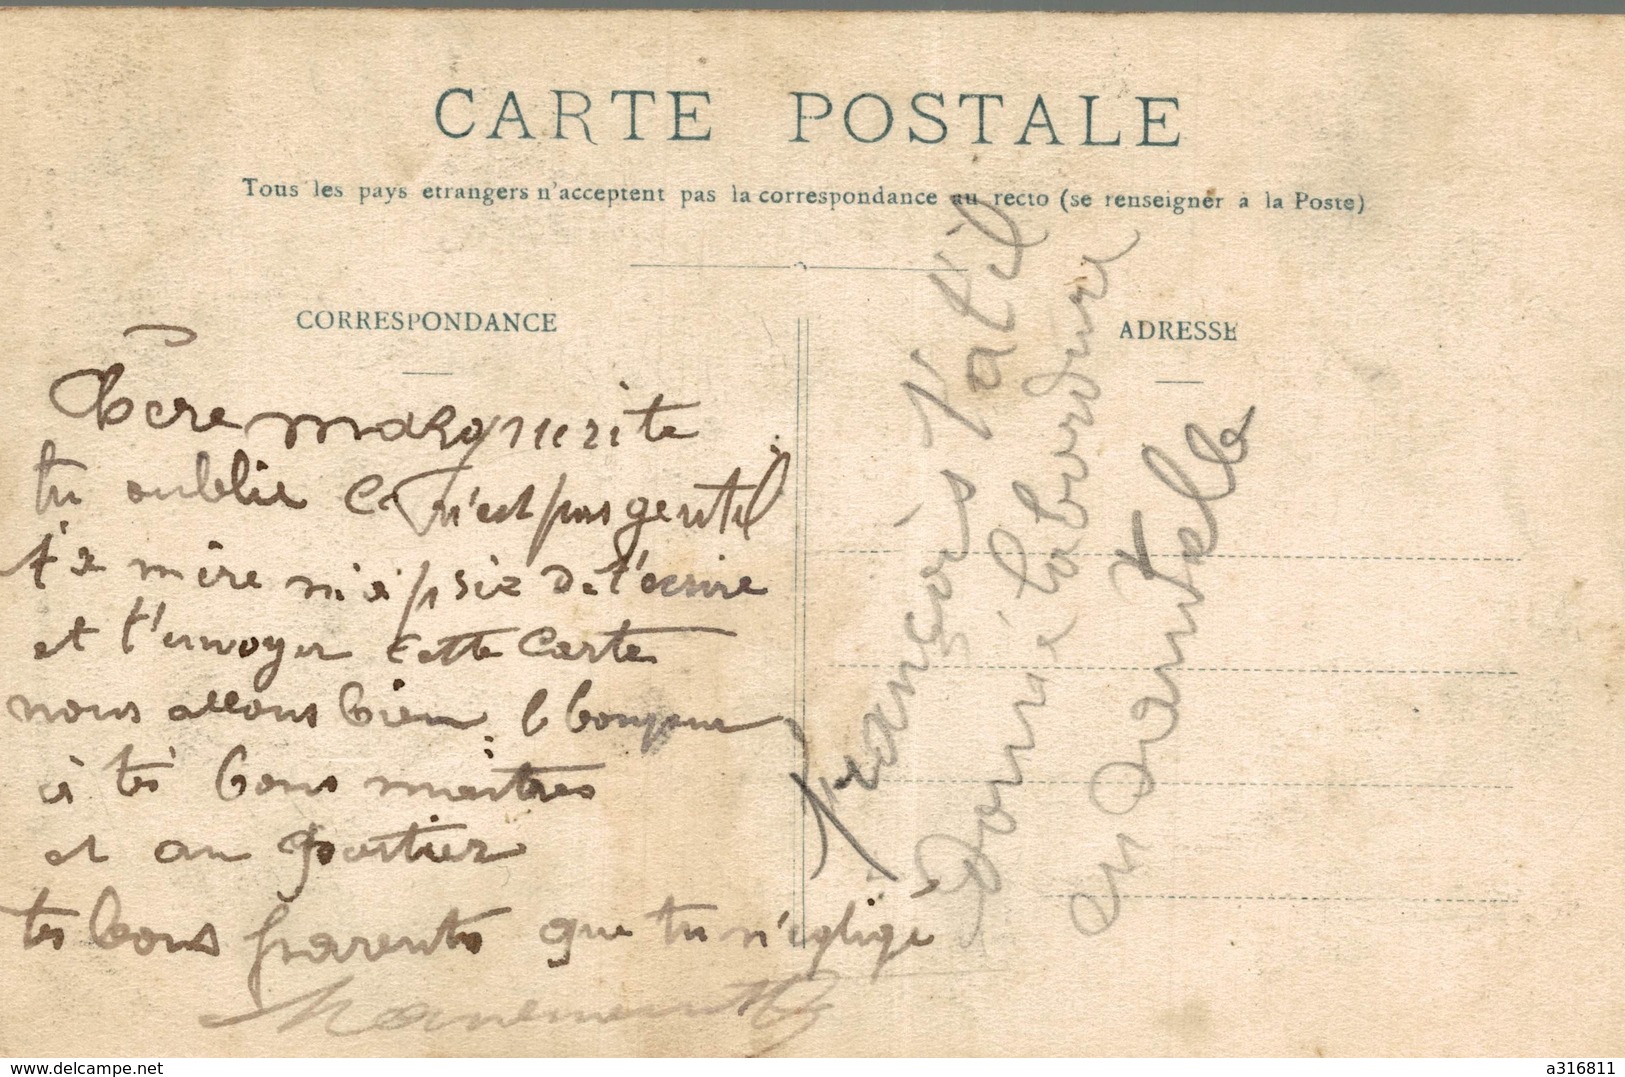 CARTE POSTALE
Tous les pays etrangers n'acceptent pas la correspondance au recto (se renseigner a la Poste)
CORRESPONDANCE
ADRESSE
Cere marguerite
tu oublie ce n'est pas gentil
mère de t'ecrire
et t'envoyer cette Carte
nous allons bien bonjour
à tes bons maitres
et au portier
tes bons parents que tu néglige
François
en dentelle
www.delcampe.net
a316811